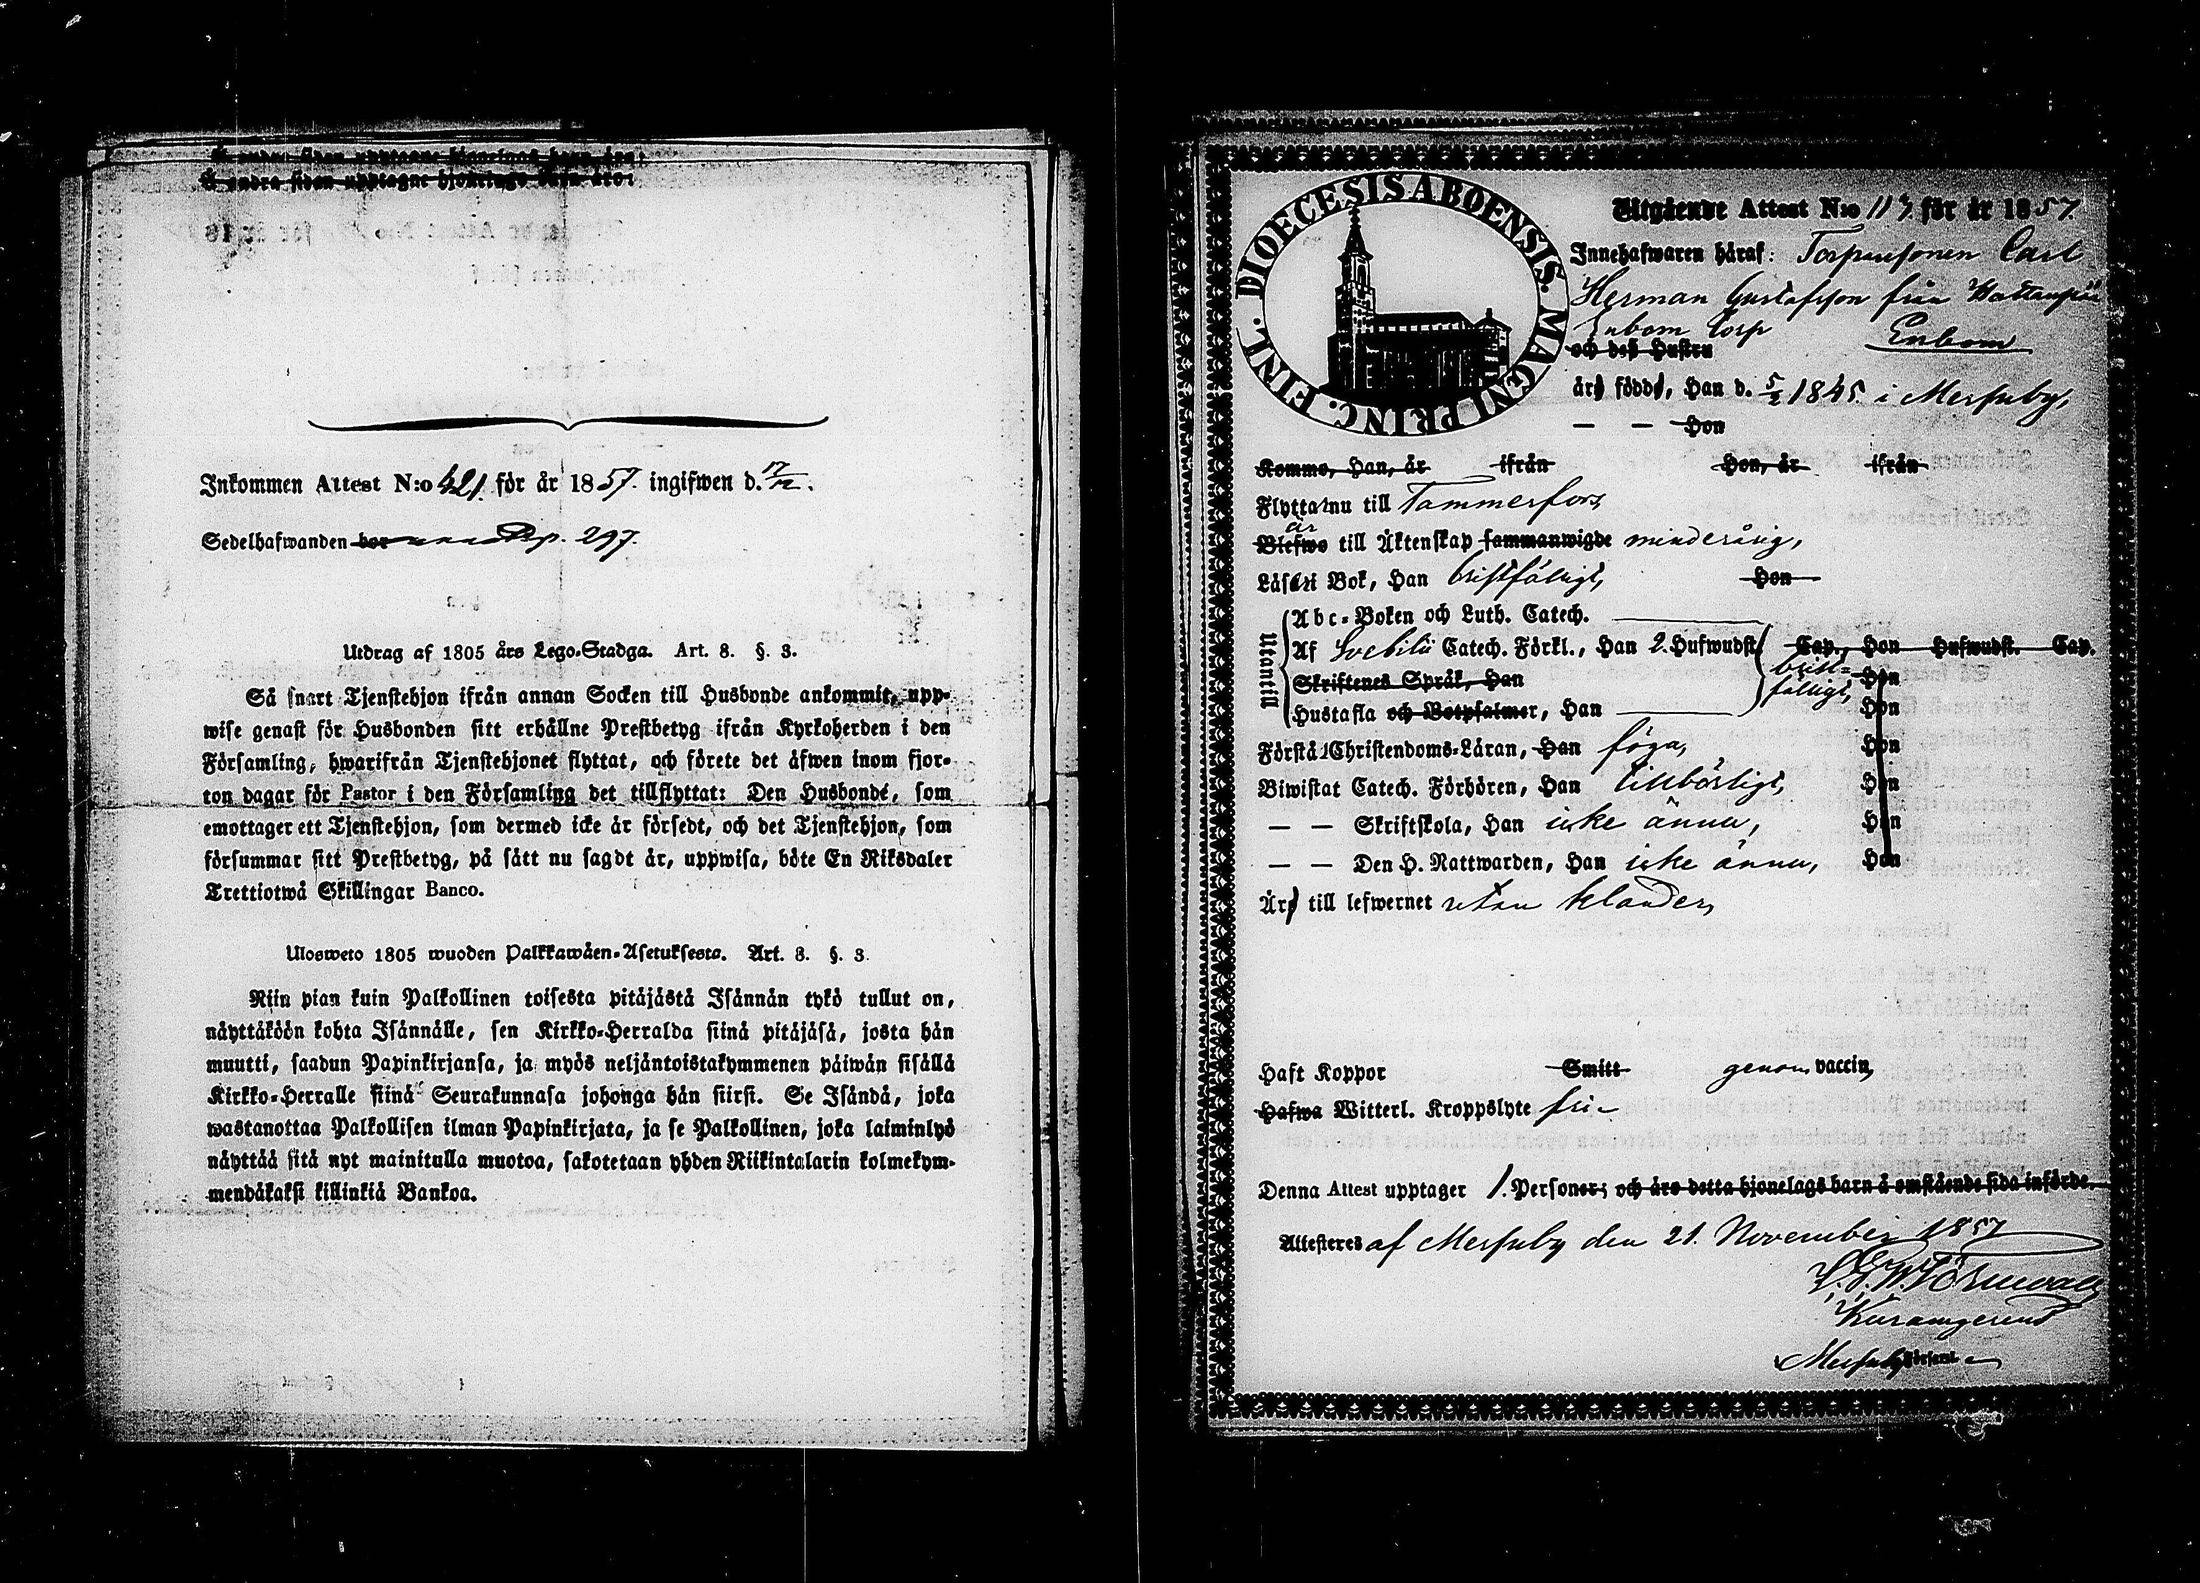 Å andra sidan upptagne hjonelags barn äro:
Å andra sidan upptagne hjonelags barn äro:
Inkommen Attest N:o 421. för år 1857. ingifwen d. 17/12.
Sedelhafwanden bor p. 297.
Utdrag af 1805 års Lego-Stadga. Art. 8. §. 3.
Så snart Tjenstehjon ifrån annan Socken till Husbonde ankommit, upp-
wise genast för Husbonden sitt erhållne Prestbetyg ifrån Kyrkoherden i den
Församling, hwarifrån Tjenstehjonet flyttat, och förete det äfwen inom fjor-
ton dagar för Pastor i den Församling det tillflyttat: Den Husbonde, som
emottager ett Tjenstehjon, som dermed icke är försedt, och det Tjenstehjon, som
försummar sitt Prestbetyg, på sätt nu sagdt är, uppwisa, böte En Riksdaler
Trettiotwå Skillingar Banco.
Ulosweto 1805 wuoden Palkkawäen-Asetuksesta. Art. 8. §. 3.
Niin pian kuin Palkollinen toisesta pitäjästä Isännän tykö tullut on,
näyttäköön kohta Isännälle, sen Kirkko-Herralda siinä pitäjäsä, josta hän
muutti, saadun Papinkirjansa, ja myös neljäntoistakymmenen päiwän sisällä
Kirkko-Herralle siinä Seurakunnasa johonga hän siirsi. Se Isändä, joka
wastanottaa Palkollisen ilman Papinkirjata, ja se Palkollinen, joka laiminlyö
näyttää sitä nyt mainitulla muotoa, sakotetaan yhden Riikintalarin kolmekym-
mendäkaksi killinkiä Bankoa.
DIOECESIS ABOENSIS. MAGNI PRINC. FINL.
Utgående Attest N:o 117 för år 1857.
Innehafwaren häraf: Torparesonen Carl
Herman Gustafsson från
Enbom torp Enbom
och deß Hustru
äro födde, Han d. 5/2 1845 i Messuby,
— — Hon
Kommo, Han, år ifrån Hon, år ifrån
Flytta nu till Tammerfors
är
Blefwo till Äktenskap sammanwigde minderårig,
Läsa i Bok, Han bristfälligt, Hon
Utantill
Abc-Boken och Luth. Catech.
Af Svebilii Catech. Förkl., Han 2. Hufwudst. Cap., Hon Hufwudst. Cap.
Skriftenes Språk, Han brist- Hon
Hustafla och Botpsalmer, Han fälligt, Hon
Förstå Christendoms-Läran, Han föga, Hon
Biwistat Catech. Förhören, Han tillbörligt, Hon
— — Skriftskola, Han icke ännu, Hon
— — Den H. Nattwarden, Han icke ännu, Hon
Äro till lefwernet utan klander,
Haft Koppor Smitt genom vaccin,
Hafwa Witterl. Kroppslyte fri
Denna Attest upptager 1. Personer; och äro detta hjonelags barn å omstående sida införde.
Attesteres af Messuby den 21. November 1857
Messuby Församl.